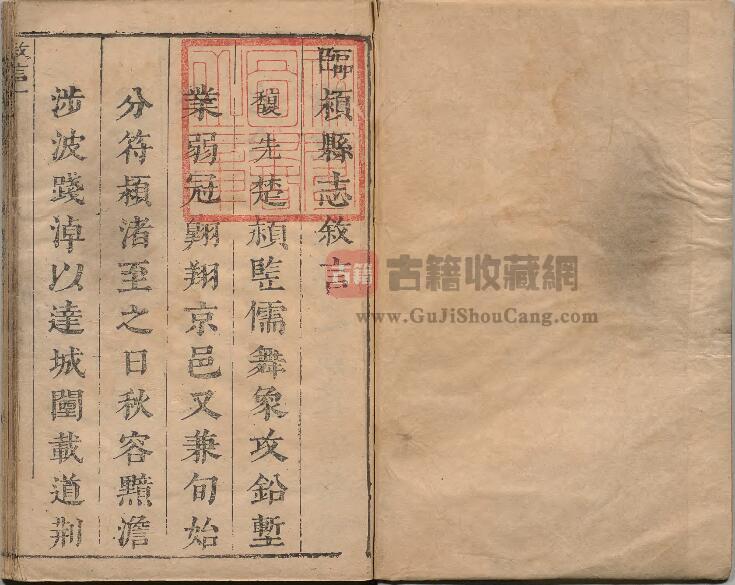 臨頴縣志敘言
馥先楚頴竪儒舞象攻鉛塹
業弱冠翱翔京邑又兼旬始
分符頴渚至之日秋容黯澹
涉波踐淖以達城闉載道荆
敘言一
古籍
古籍收藏網
www.GuJiShouCang.com